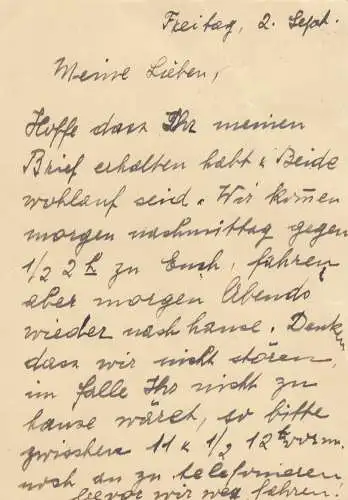 Freitag, 2. Sept.
Meine Lieben,
Hoffe dass Ihr meinen
Brief erhalten habt u Beide
wohlauf seid. Wir kom̅en
morgen nachmittag gegen
1/2 2 h zu Euch, fahren
aber morgen Abends
wieder nach hause. Denken
dass wir nicht stören,
im falle Ihr nicht zu
hause wäret, so bitte
zwischen 11 u 1/2 12 h vorm.
noch an zu telefonieren
bevor wir weg fahren!